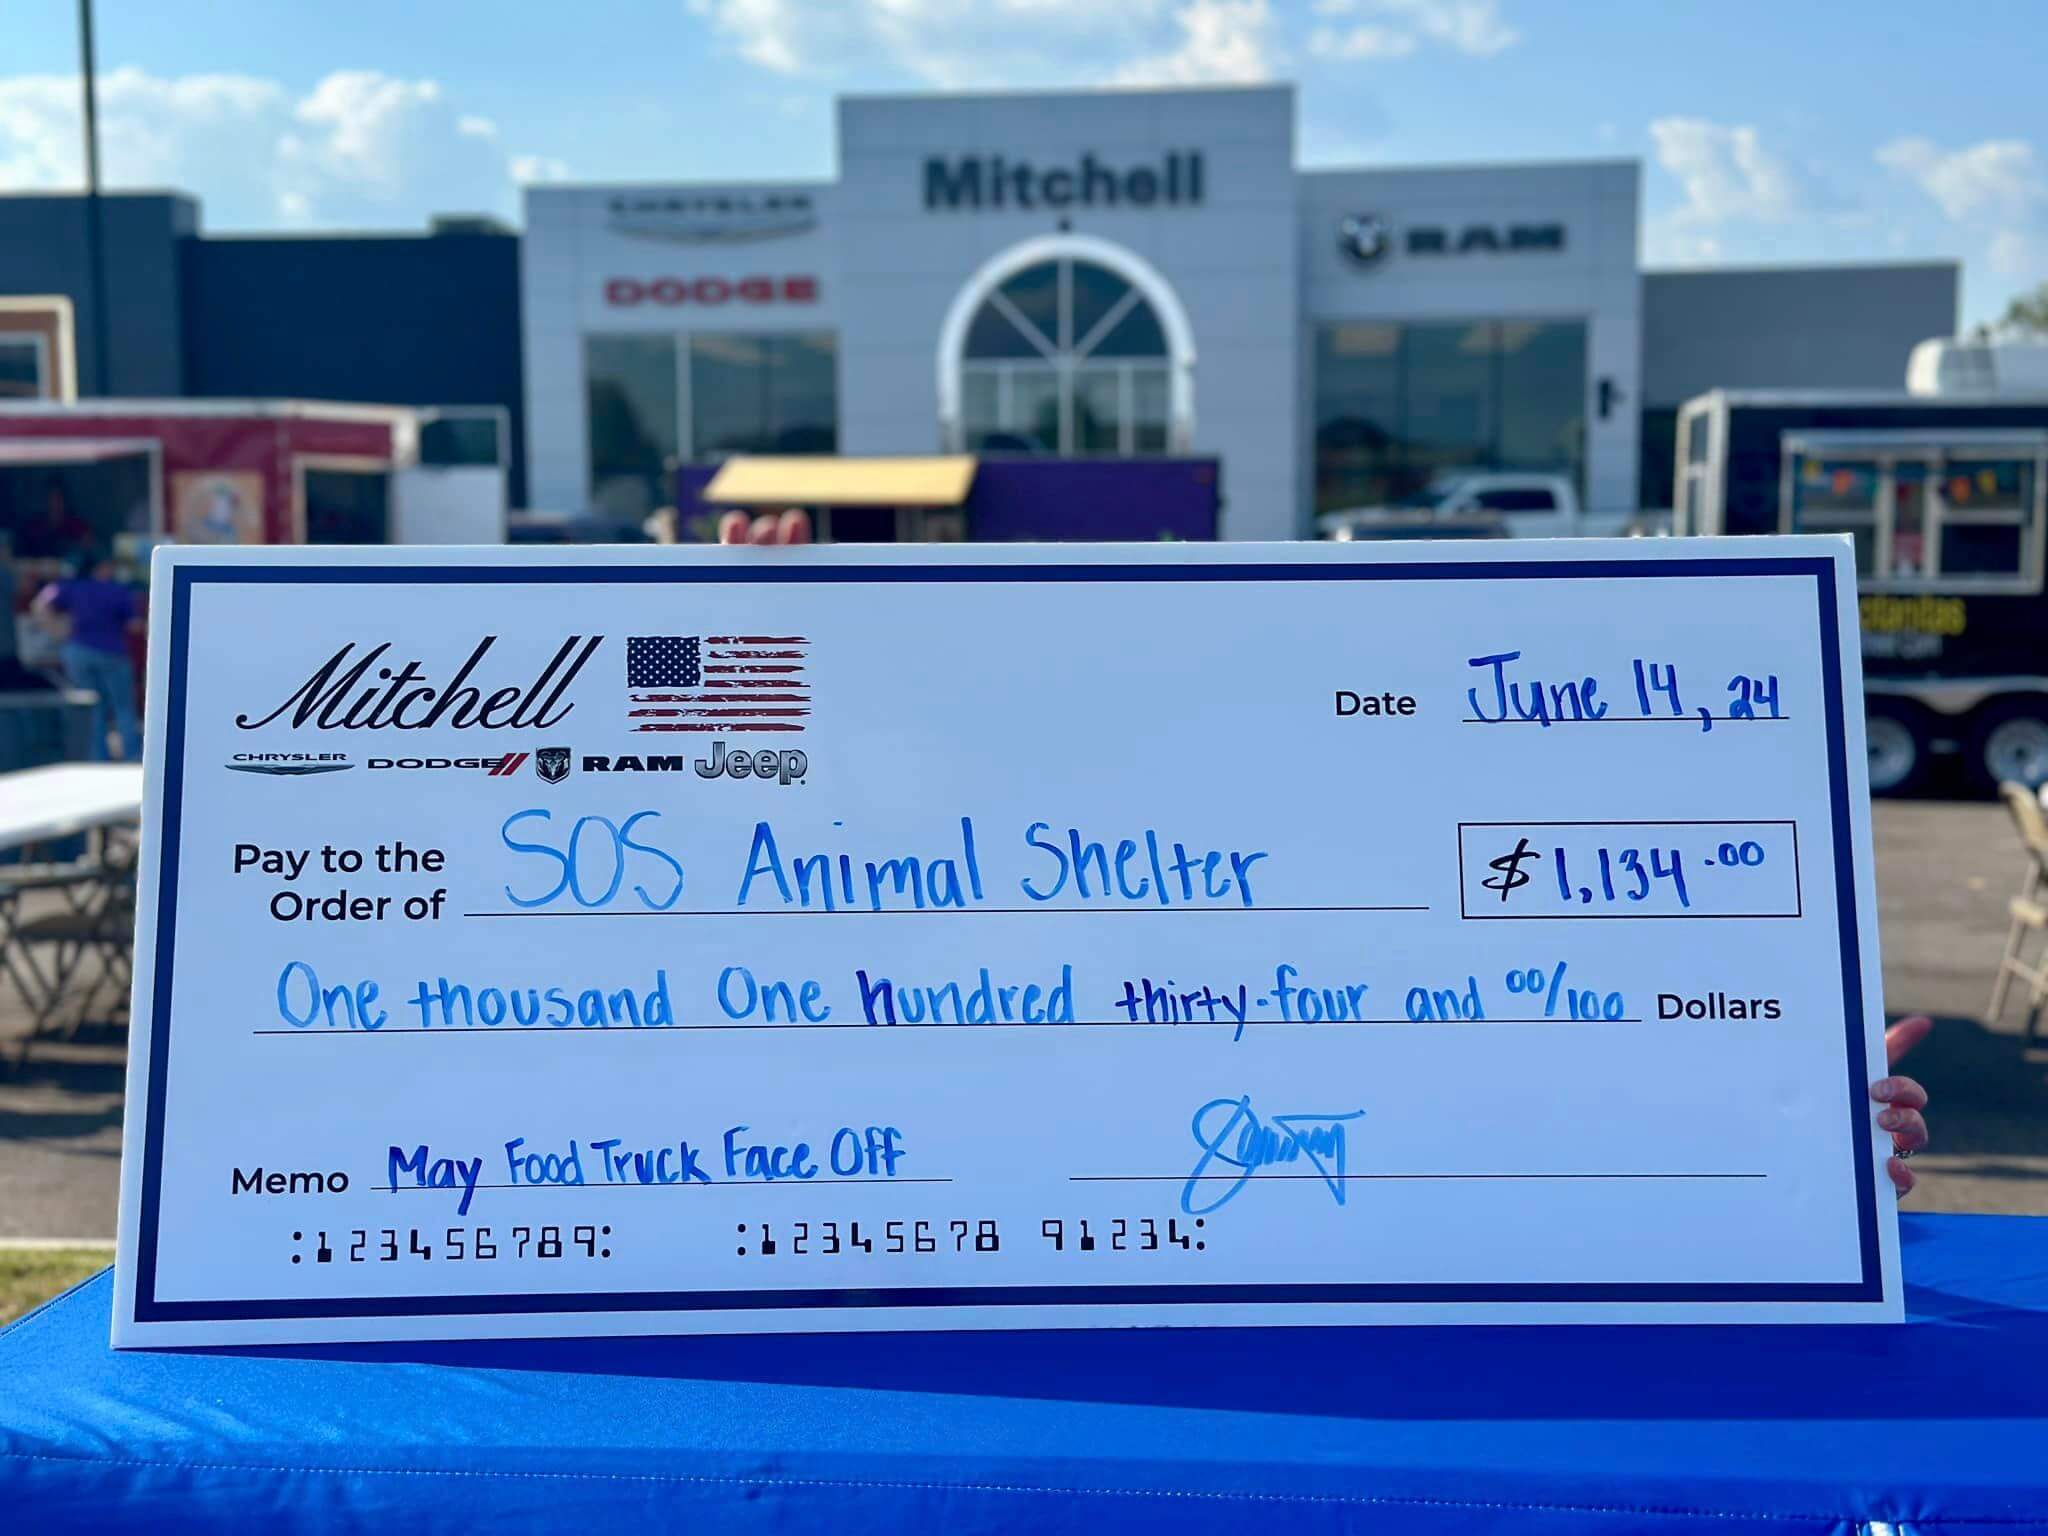 Mitchell
CHRYSLER
DODGE
RAM
Mitchell
CHRYSLER DODGE RAM Jeep
Date June 14, 24
Pay to the
Order of SOS Animal Shelter $ 1,134.00
One thousand One hundred thirty-four and 00/100 Dollars
Memo May Food Truck Face Off
:123456789: :12345678 91234: